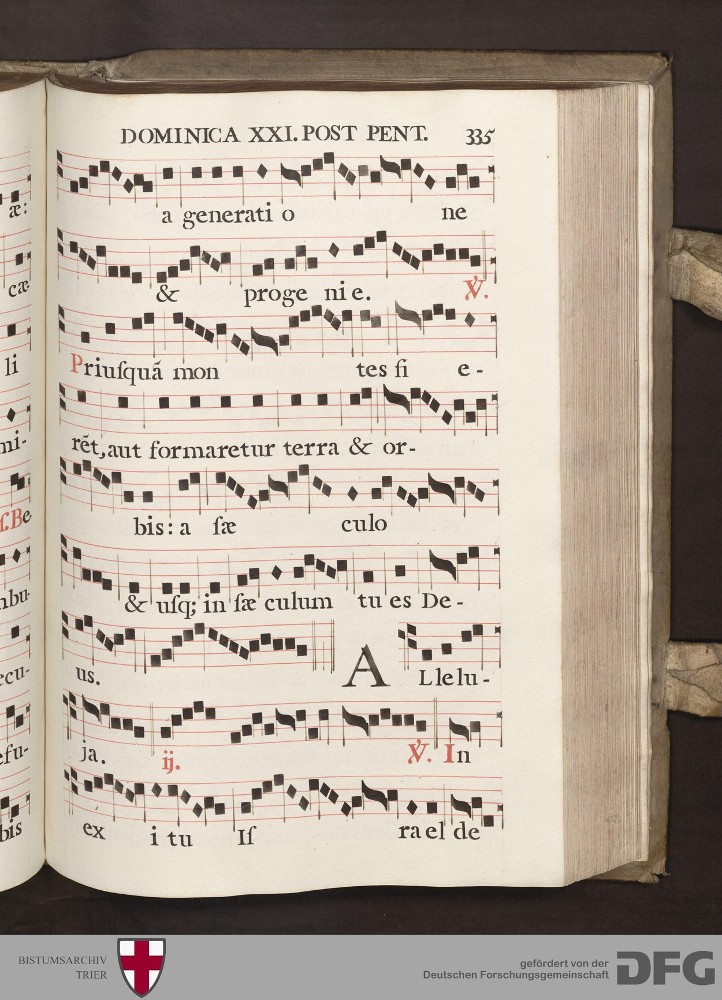 DOMINICA XXI. POST PENT. 335
a generati o ne
& proge ni e. ℣.
Priuſquã mon tes fi e-
rẽt, aut formaretur terra & or-
bis: a ſæ culo
& uſq; in ſæ culum tu es De-
us. A Llelu-
ja. ij. ℣. In
ex i tu Iſ ra el de
æ:
cæ
li
mi-
ſ. Be
mbu-
ecu-
efu-
bis
BISTUMSARCHIV
TRIER
gefördert von der
Deutschen Forschungsgemeinschaft
DFG